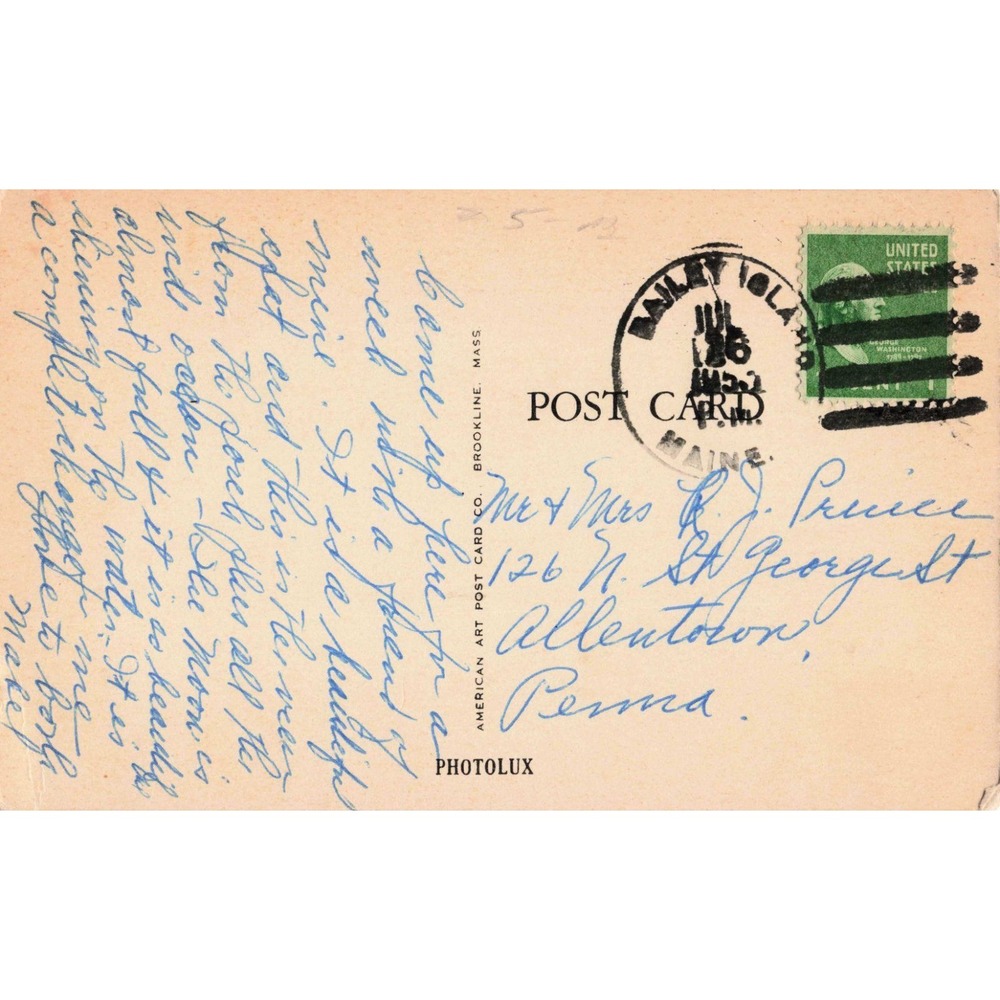 Came up here for a
week with a friend of
mine. It is a beautiful
spot and this is the view
from the porch plus all the
wide ocean – The Moon is
almost full & it is as beautiful
shimmering on the water. It is
a complete change for me
Love to both
Mabel
2 5 -
POST CARD
BAILEY ISLAND
JUL
26
P.M.
MAINE.
UNITED
STATES
GEORGE
WASHINGTON
1789-1797
CENT 1
Mr & Mrs R. J. Prince
126 N. St George St
Allentown,
Penna.
AMERICAN ART POST CARD CO., BROOKLINE, MASS
PHOTOLUX